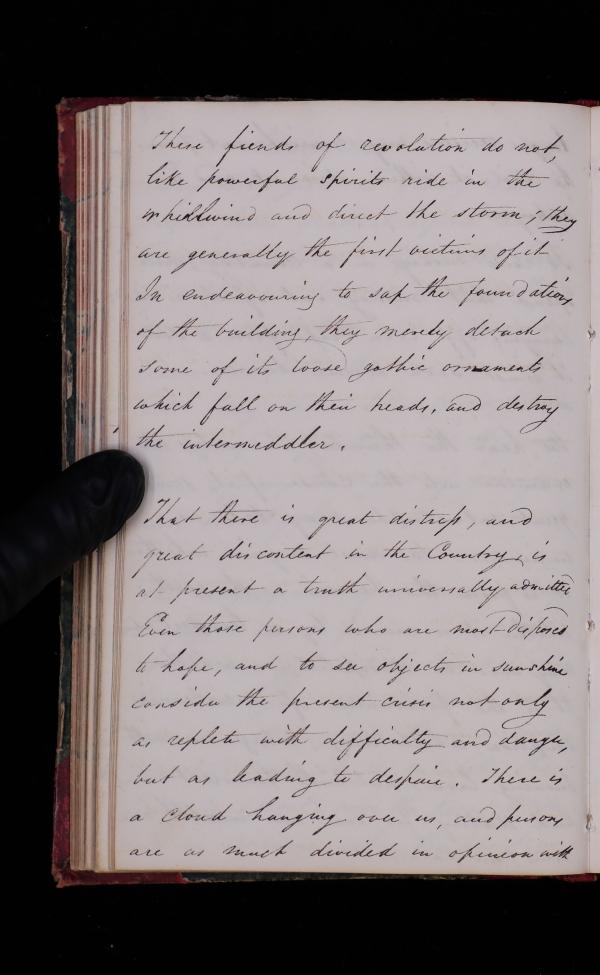 These fiends of revolution do not,
like powerful spirits ride in the
whirlwind and direct the storm; they
are generally the first victims of it
In endeavouring to sap the foundations
of the building, they merely detach
some of its loose gothic ornaments
which fall on their heads, and destroy
the intermeddler.
That there is great distress, and
great discontent in the Country, is
at present a truth universally admitted
Even those persons who are most disposed
to hope, and to see objects in sunshine
consider the present crisis not only
as replete with difficulty and danger,
but as leading to despair. There is
a cloud hanging over us, and persons
are as much divided in opinion with